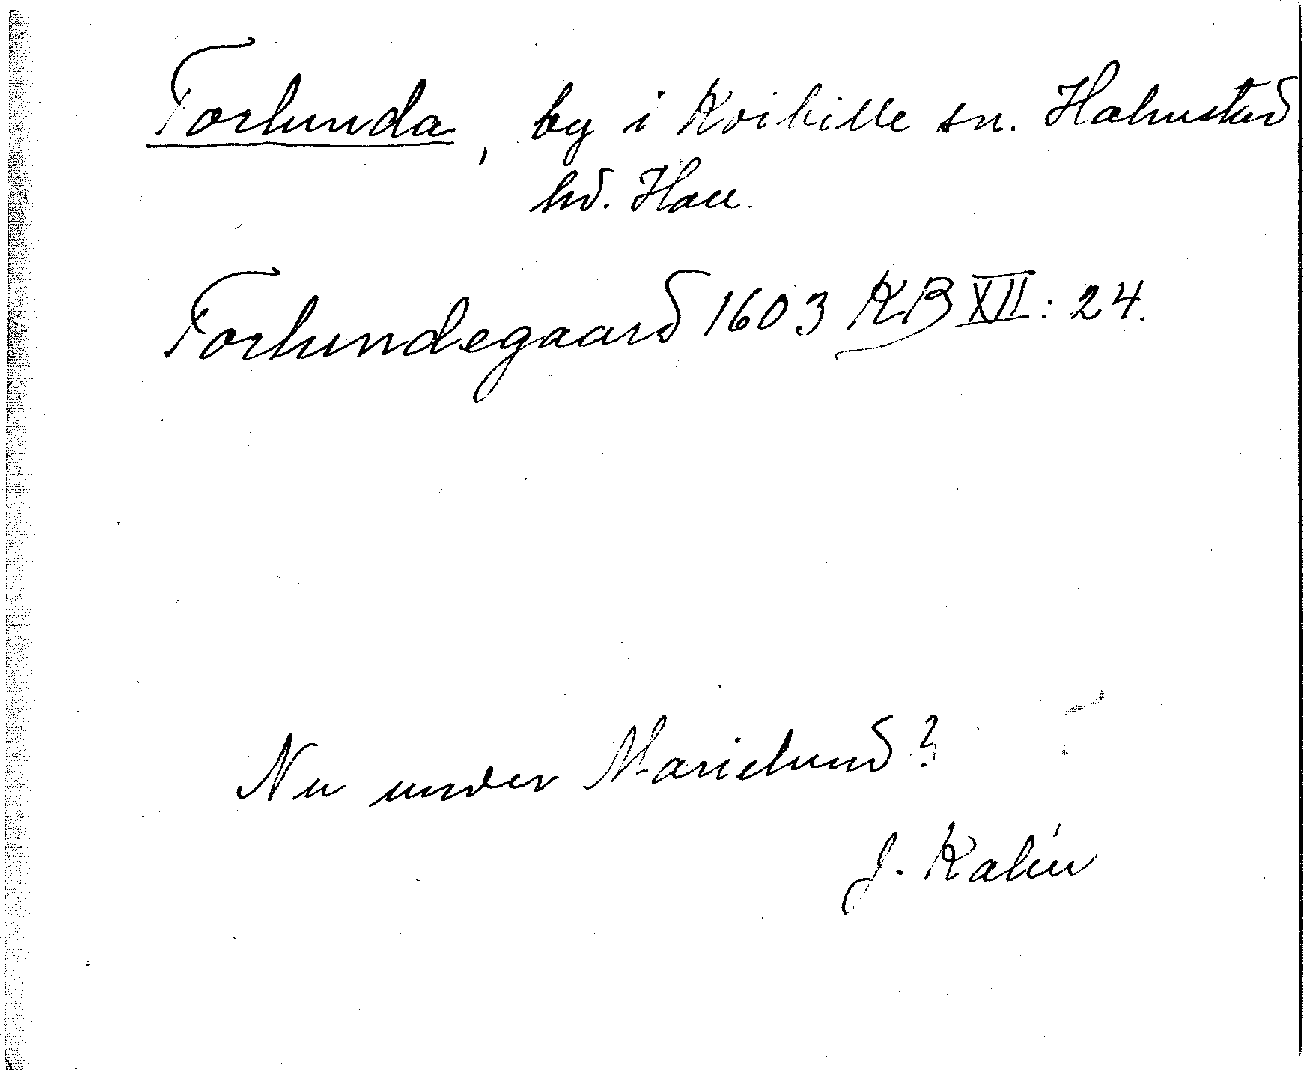 Torlunda, by i Kvibille sn. Halmstad
hd. Hall
Torlundegaard 1603 KB XII: 24.
Nu under Marielund?
J. Kalén